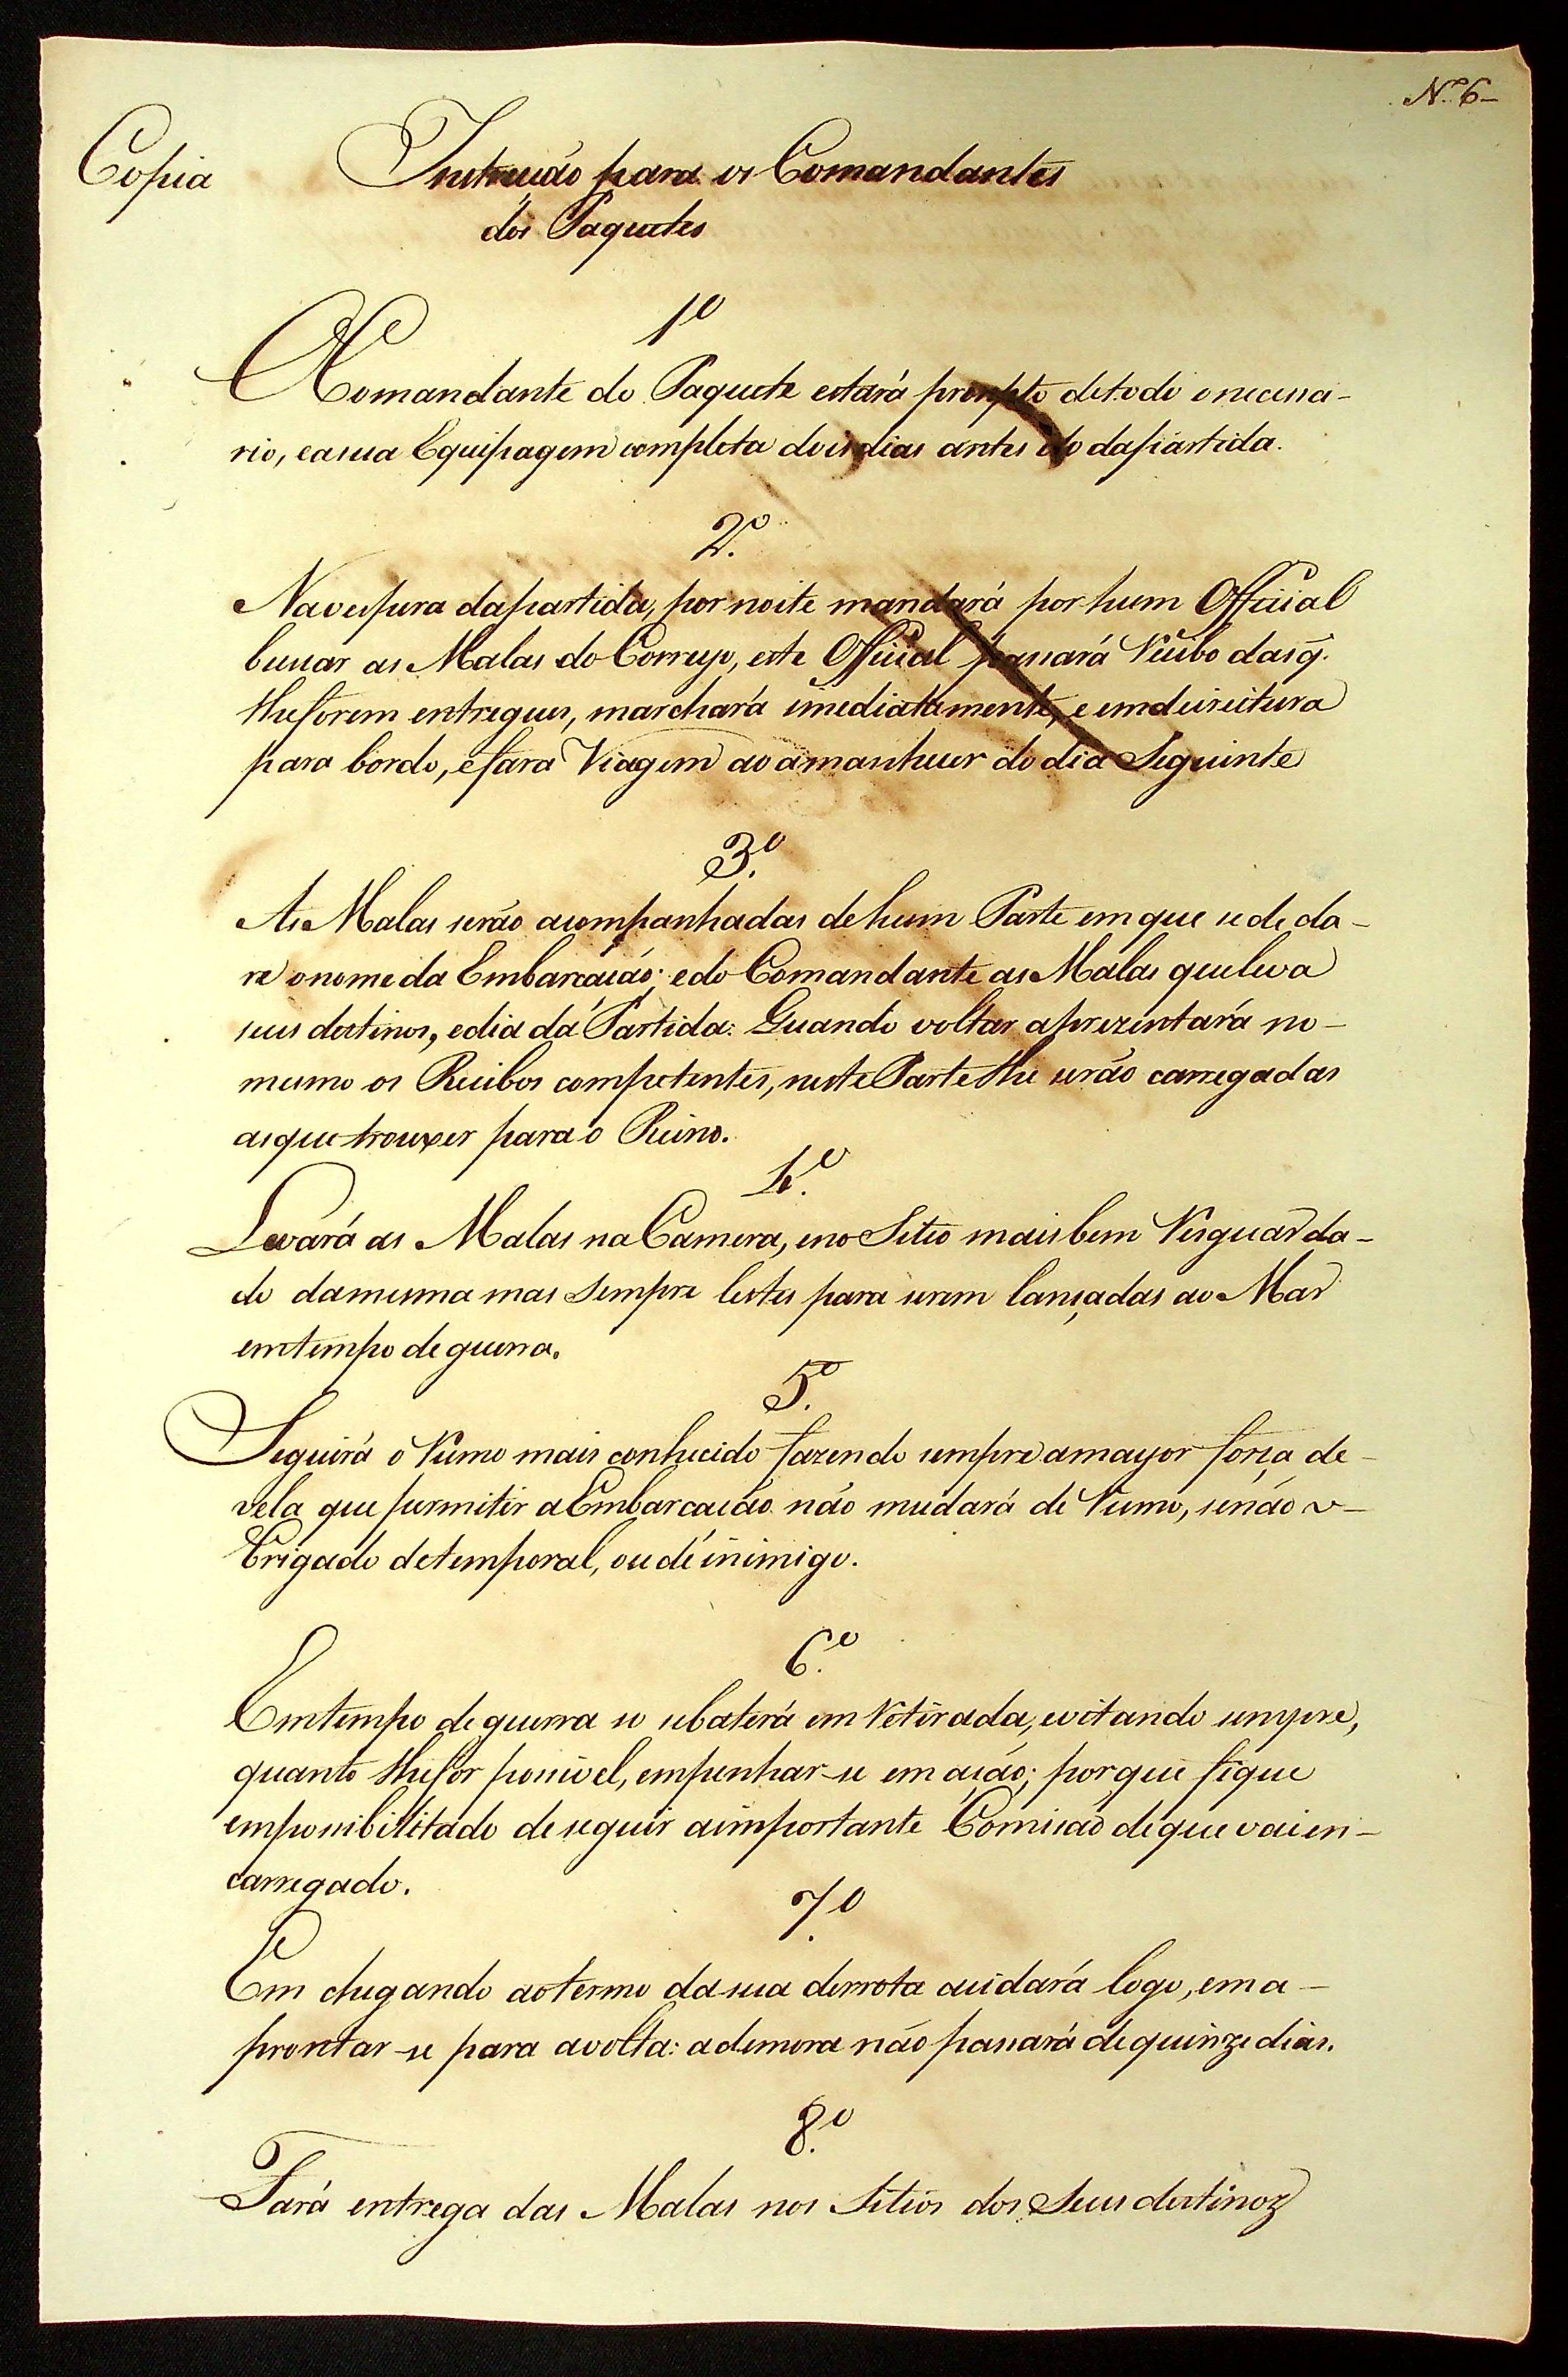 Nº 6-
Copia Instrucão para os Comandantes
dos Paquetes
1º
O Comandante do Paquete estará prompto de todo o necessa-
rio, e a sua Equipagem completa dois dias antes do da partida.
2º
Na vespera da partida, por noite mandará por hum Official
buscar as Malas do Correyo, este Official passará Recibo das q̃.
lhe forem entregues, marchará imediatamente, e em direitura
para bordo, e fara Viagem ao amanhecer do dia Seguinte
3º
As Malas serão acompanhadas de hum Parte em que se decla-
re o nome da Embarcacão; e do Comandante as Malas que leva
seus destinos, e dia da Partida: Quando voltar aprezentará no-
mesmo os Recibos competentes, neste Parte lhe serão carregadas
as que trouxer para o Reino.
4º
Levará as Malas na Camera, e no Sitio mais bem Resguarda-
do da mesma mas sempre lestes para serem lançadas ao Mar
em tempo de guerra.
5º
Seguirá o Rumo mais conhecido fazendo sempre a mayor força de-
vela que permitir a Embarcacão não mudará de Rumo, senão o-
brigado de temporal, ou de inimigo.
6º
Em tempo de guerra so se baterá em Retirada, evitando sempre,
quanto lhe for possivel, empenhar-se em acão; porque fique
empossibilitado de seguir a importante Comissão de que vai en-
carregado.
7º
Em chegando ao termo da sua derrota cuidará logo, em a-
prontar-se para a volta: a demora não passará de quinze dias.
8º
Fará entrega das Malas nos Sitios dos Seus destinoz